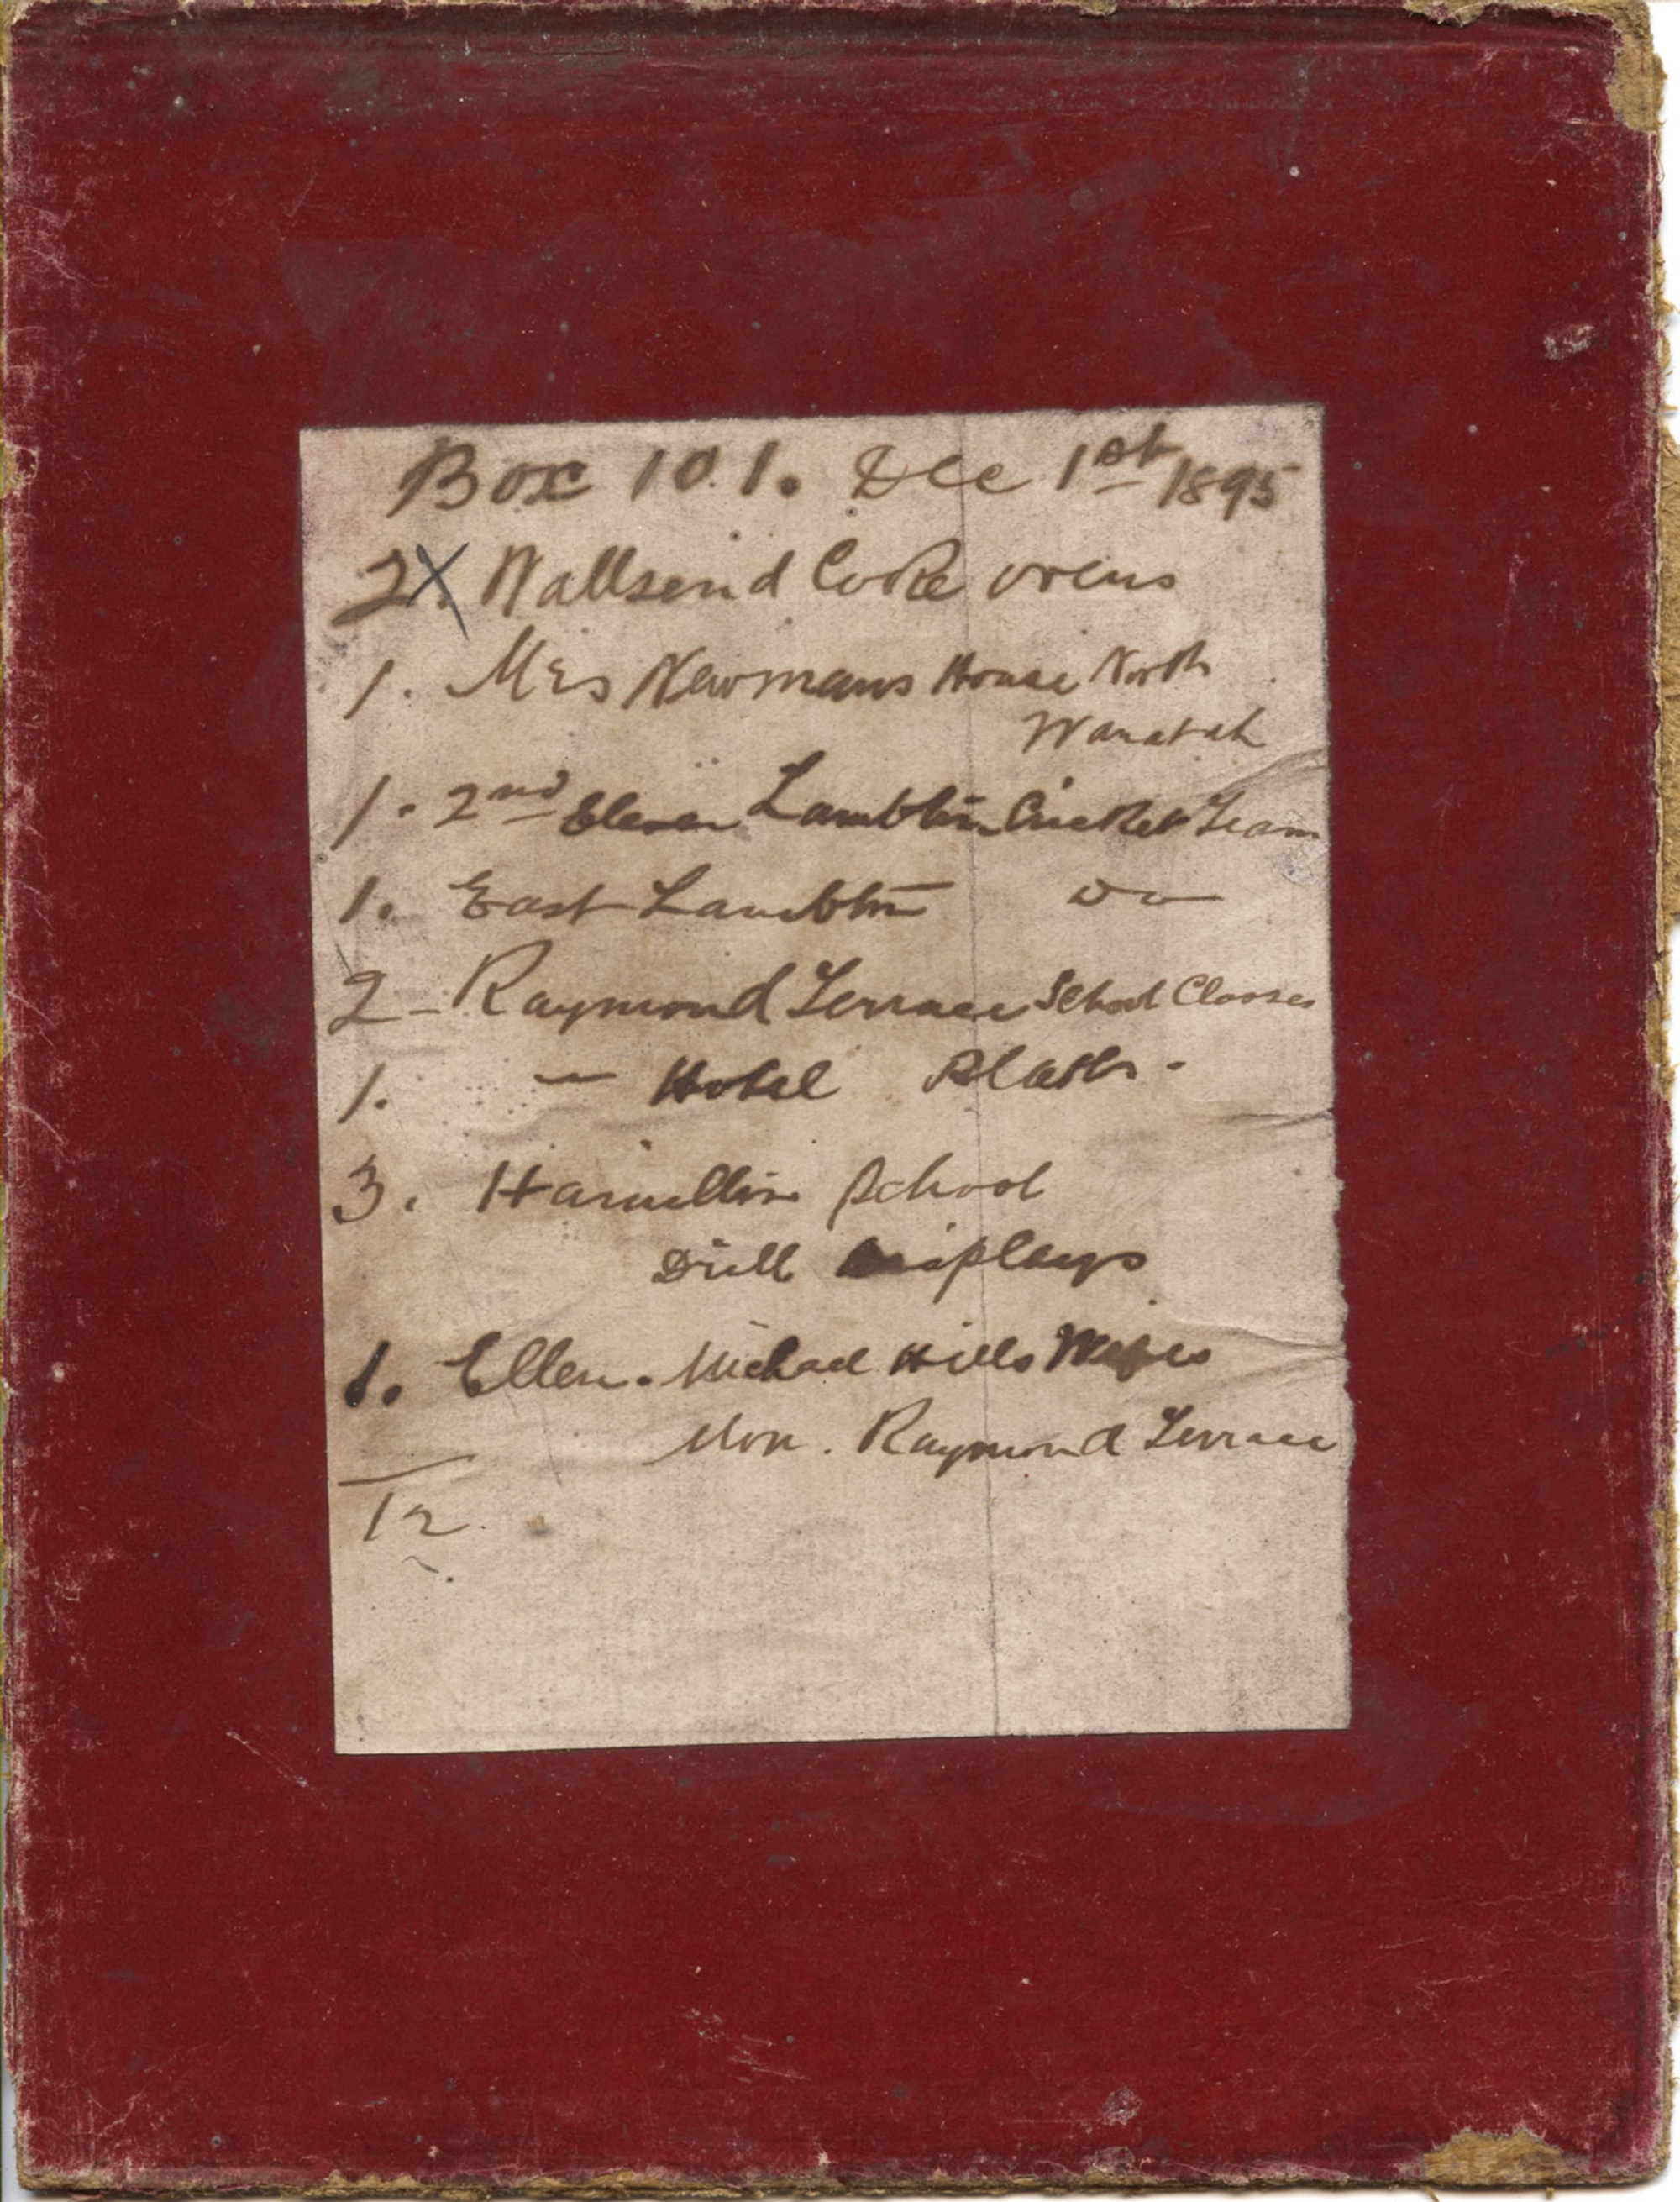 Box 101. Dec 1st 1895
2X. Wallsend Coke ovens
1. Mrs Newmans House North
Waratah
1. 2nd Eleven Lambton Cricket Team
1. East Lambton do
2 - Raymond Terrace School Classes
1. " Hotel
3. Hamilton School
Drill displays
1. Ellen. Michael Hills
Mon. Raymond Terrace
12.